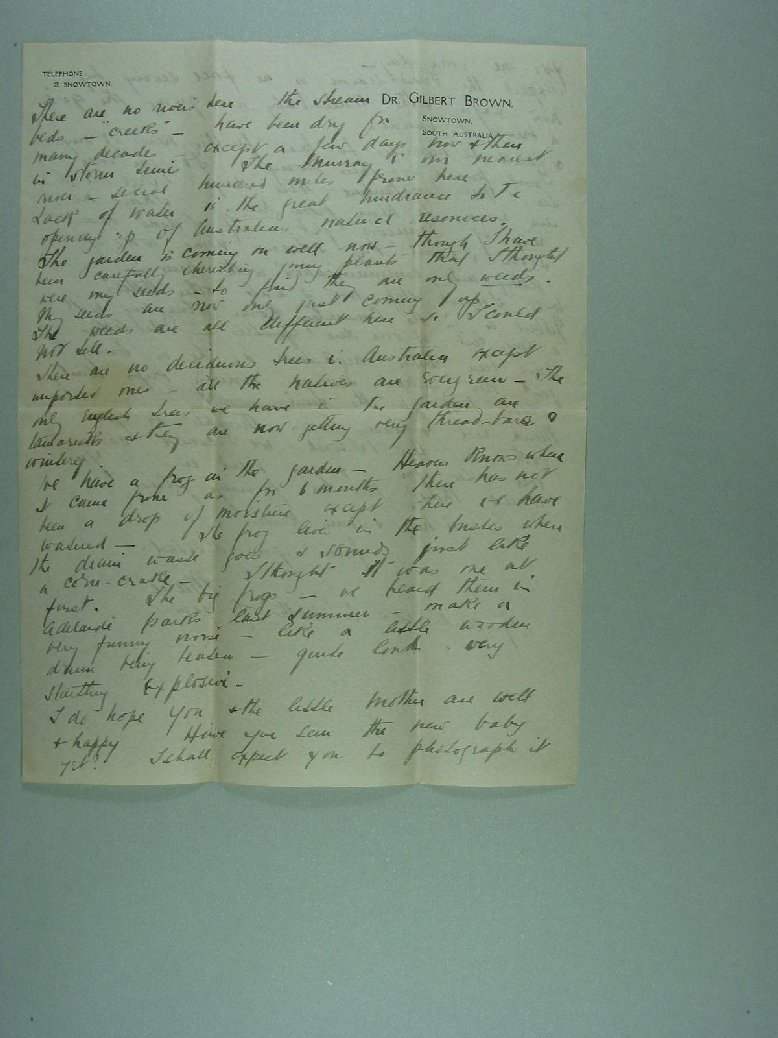 TELEPHONE
2 SNOWTOWN.
DR. GILBERT BROWN.
SNOWTOWN,
SOUTH AUSTRALIA
There are no rivers here the stream
beds – "creeks" – have been dry for
many decades except a few days now & then
in storm time The Murray is our nearest
river – several hundred miles from here
Lack of water is the great hindrance to the
opening up of Australian natural resources.
The garden is coming on well now – though I have
been carefully cherishing many plants that I thought
were my seeds – to find they are only weeds.
My seeds are now only just coming up.
The weeds are all different here so I could
not tell –
There are no deciduous trees in Australia except
imported ones – all the natives are evergreen – The
only English trees we have in the garden are
& they are now getting very thread-bare &
wintery
We have a frog in the garden – Heaven knows where
it came from as for 6 months there has not
been a drop of moisture except where we have
watered – The frog lives in the where
the drain waste goes & sounds just like
a corn-crake – I thought it was one at
first. The big frogs – we heard them in
Adelaide parks last summer – make a
very funny noise – like a little wooden
drum being beaten – quite loud very
startling explosive –
I do hope you & the little mother are well
& happy Have you seen the new baby
yet? I shall expect you to photograph it